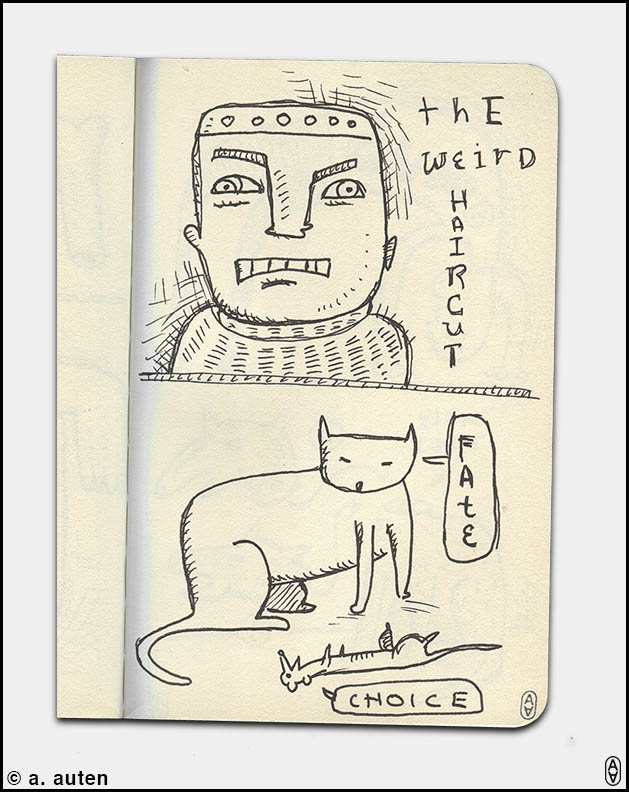 thE
WEirD
HAIRCUT
FAtE
CHOICE
© a. auten